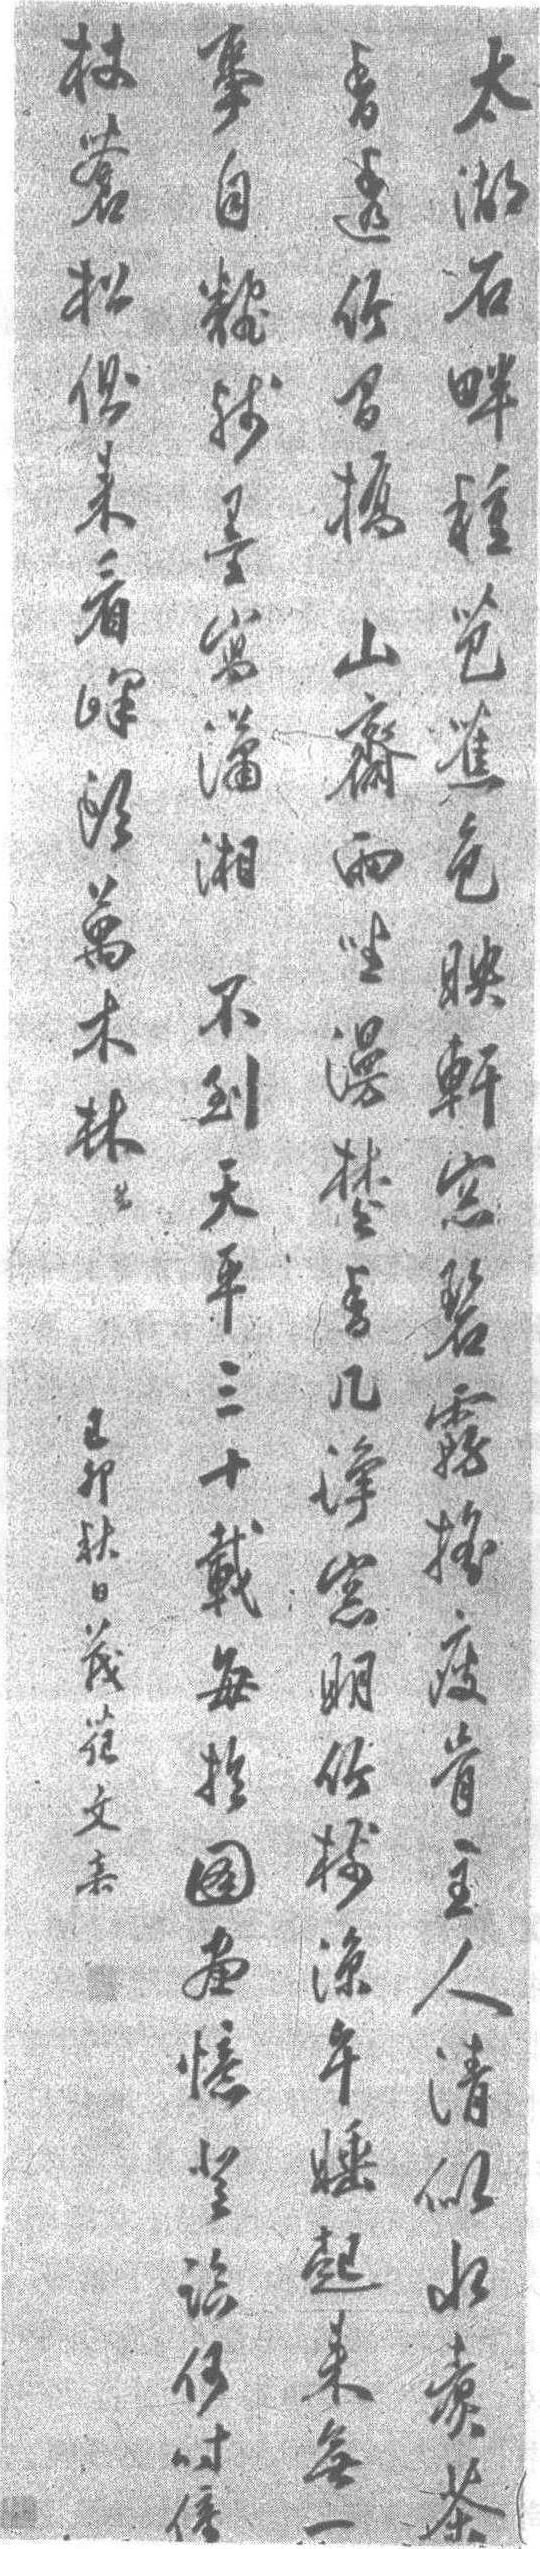 太湖石畔種芭蕉色映軒窓碧霧搖瘦骨主人清似水煮茶
香透竹間橋 山齋雨坐漫焚香几淨窓明竹樹涼午睡起來無一
事自離殘墨寫瀟湘 不到天平三十載每抚圖畫憶登臨何時倚
杖蒼松側來看峰頭萬木林
己卯秋日茂苑文嘉